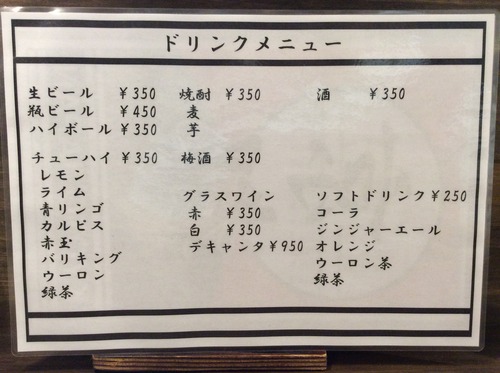 ドリンクメニュー
生ビール ¥350
瓶ビール ¥450
ハイボール ¥350
チューハイ ¥350
レモン
ライム
青リンゴ
カルピス
赤玉
バリキング
ウーロン
緑茶
焼酎 ¥350
麦
芋
梅酒 ¥350
グラスワイン
赤 ¥350
白 ¥350
デキャンタ ¥950
酒 ¥350
ソフトドリンク ¥250
コーラ
ジンジャーエール
オレンジ
ウーロン茶
緑茶